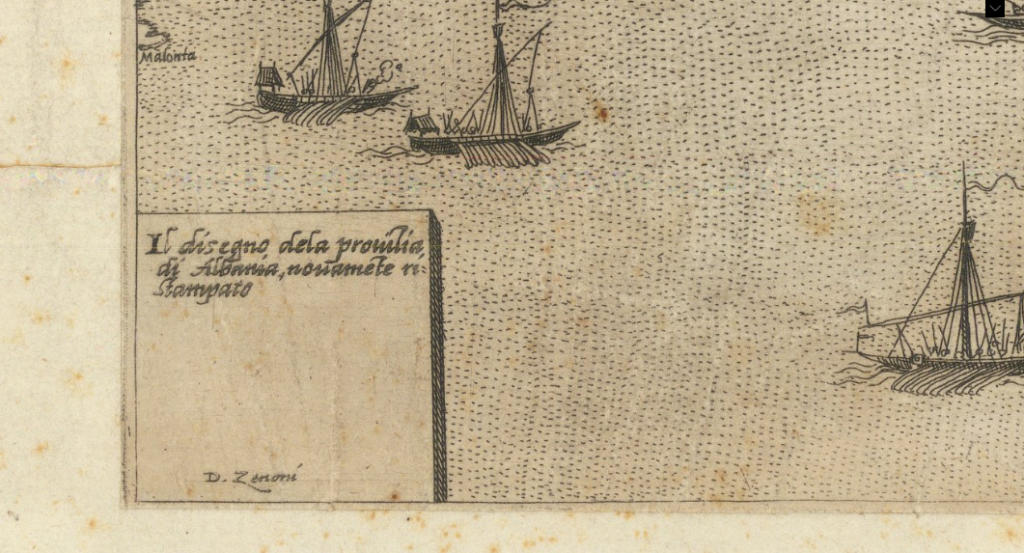 Malonta
Il disegno dela prouilia
di Albania, nouamete ri:
stampato
D. Zenoni